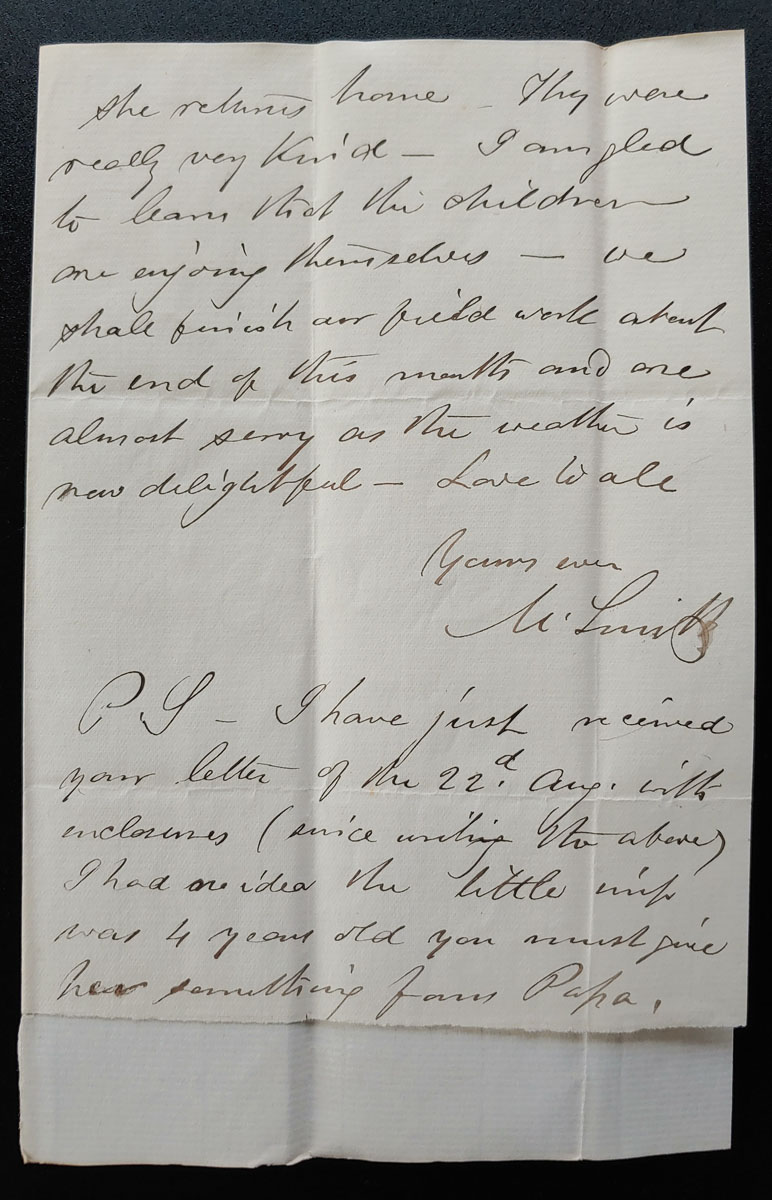 she returns home _ They were
really very Kind — I am glad
to learn that the children
are enjoying themselves — we
shall finish our field work about
the end of this month and are
almost sorry as the weather is
now delightful — Love to all
Yours ever
M. Smith
P.S — I have just received
your letter of the 22d. Aug. with
enclosures (since writing the above)
I had no idea the little imp
was 4 years old you must give
her something from Papa.